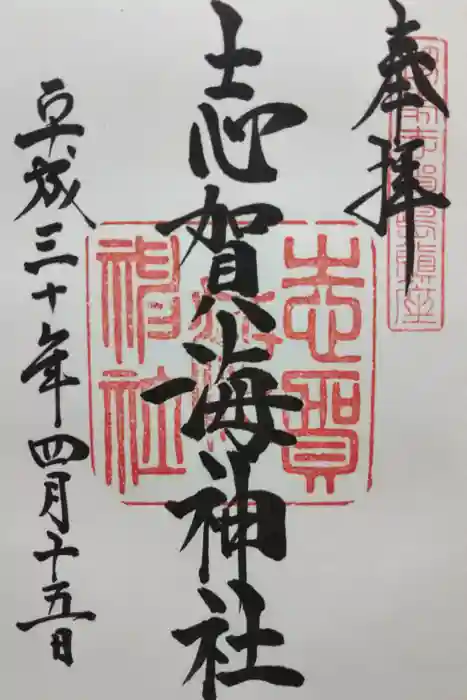 奉拝
志賀海神社
平成三十年四月十五日
志賀
海
神社